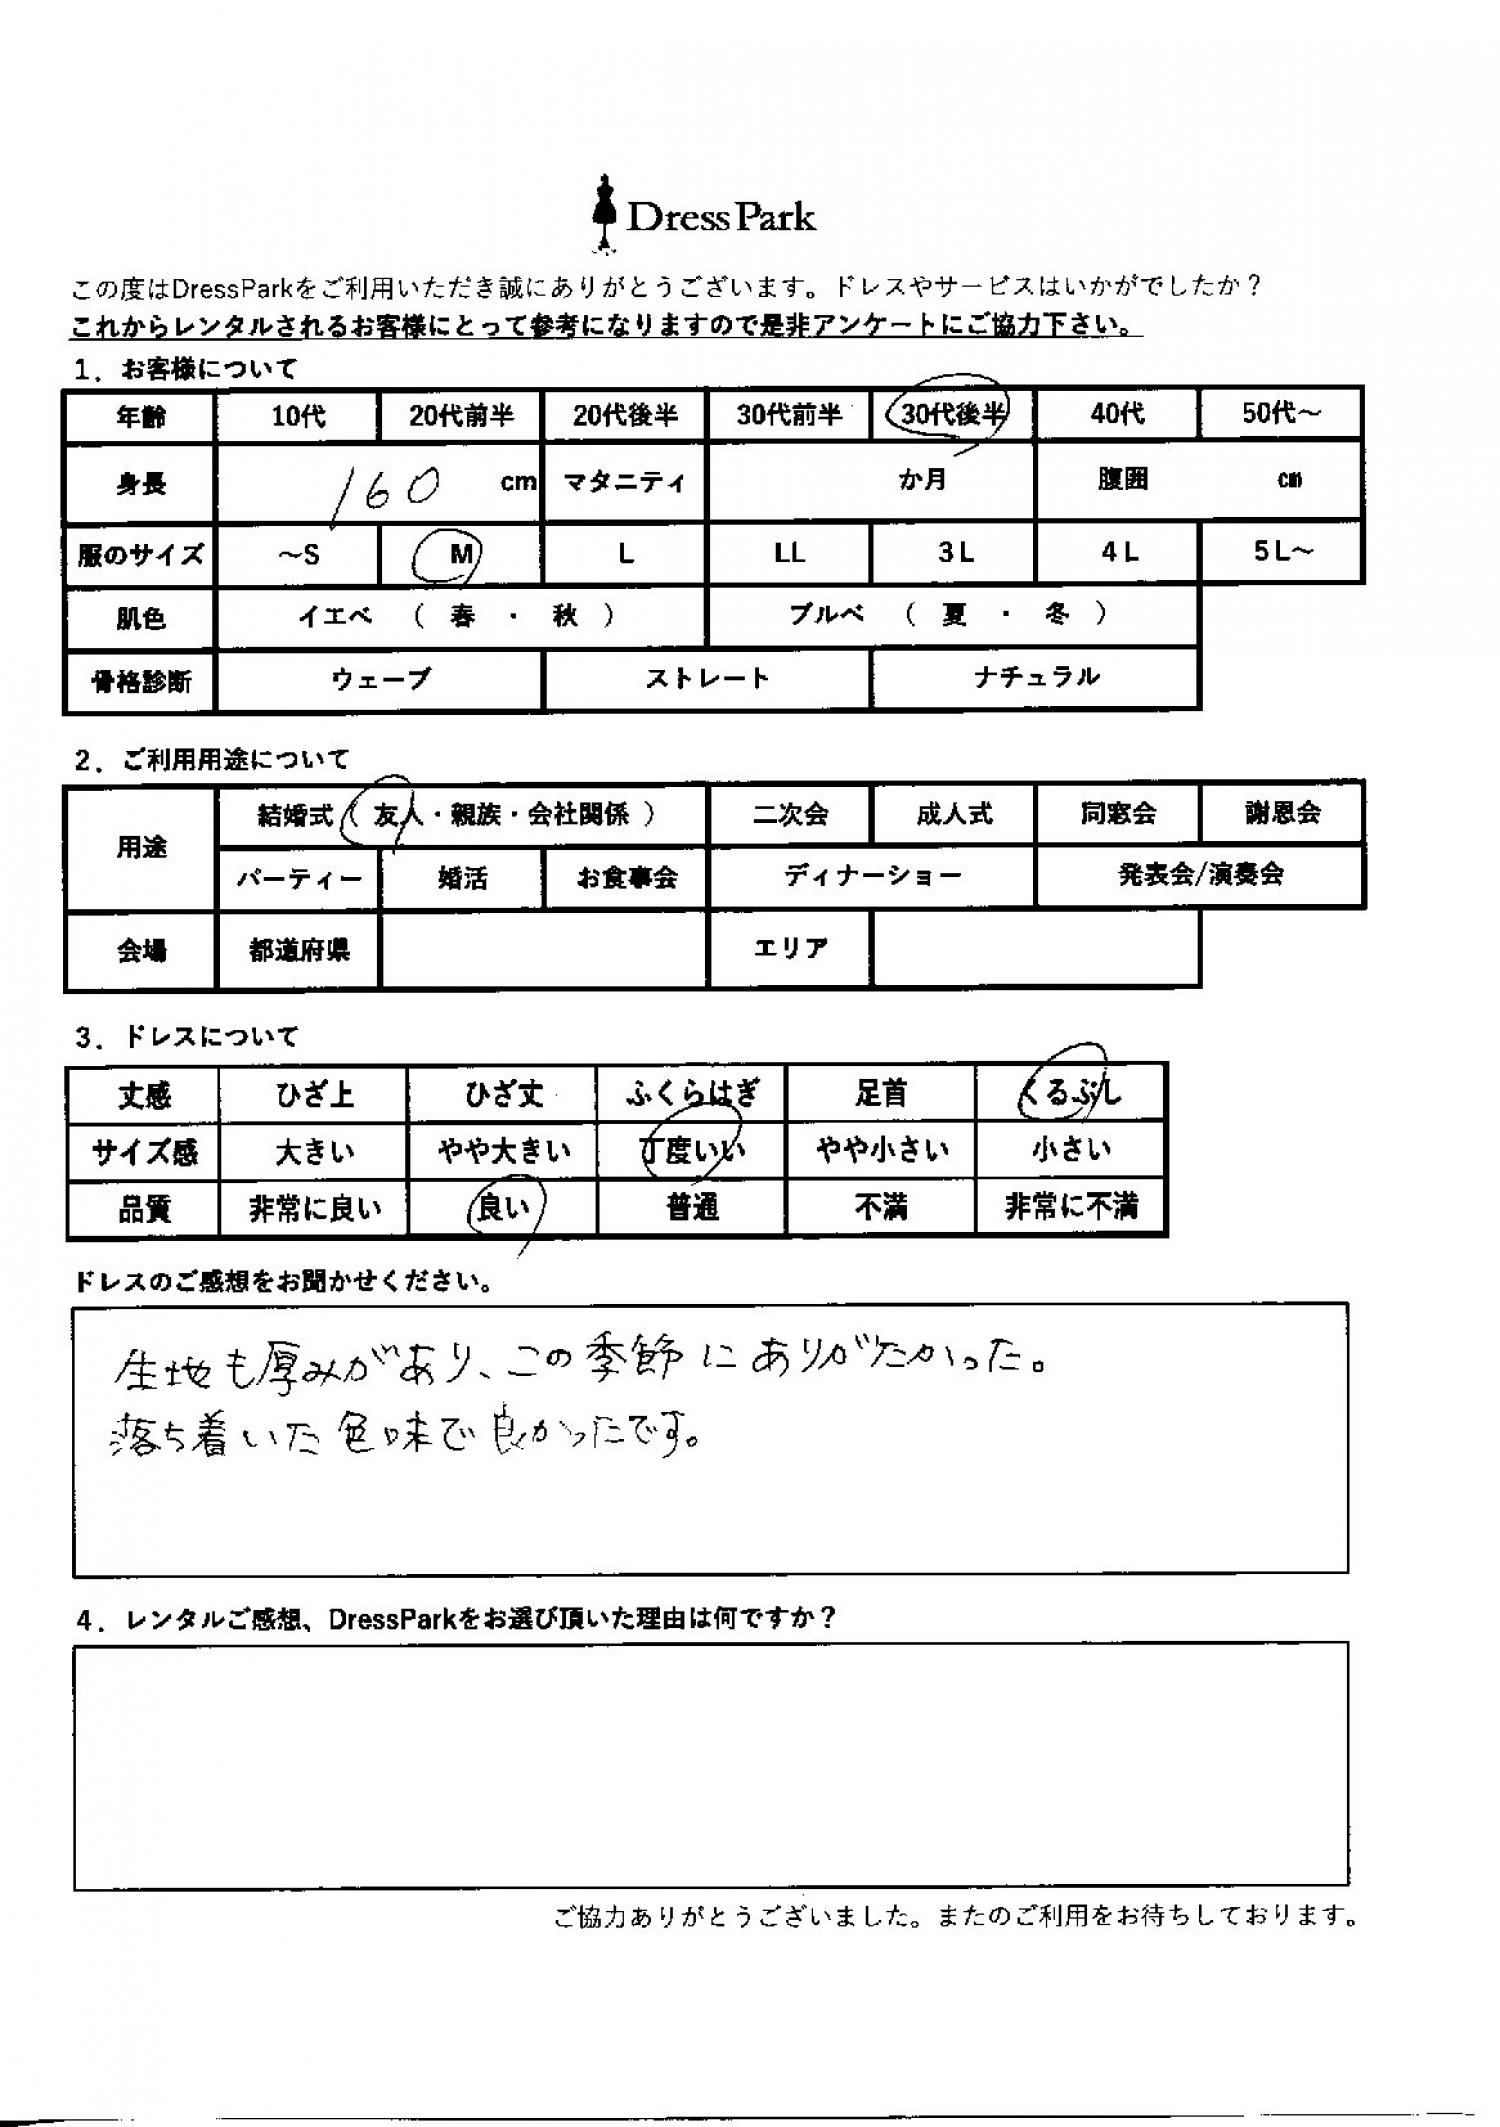 Dress Park
この度はDressParkをご利用いただき誠にありがとうございます。ドレスやサービスはいかがでしたか？
これからレンタルされるお客様にとって参考になりますので是非アンケートにご協力下さい。
1．お客様について
年齢 10代 20代前半 20代後半 30代前半 30代後半 40代 50代～
身長 160 cm マタニティ か月 腹囲 cm
服のサイズ ～S M L LL 3L 4L 5L～
肌色 イエベ （ 春 ・ 秋 ） ブルベ （ 夏 ・ 冬 ）
骨格診断 ウェーブ ストレート ナチュラル
2．ご利用用途について
用途 結婚式（ 友人・親族・会社関係 ） 二次会 成人式 同窓会 謝恩会
パーティー 婚活 お食事会 ディナーショー 発表会/演奏会
会場 都道府県 エリア
3．ドレスについて
丈感 ひざ上 ひざ丈 ふくらはぎ 足首 くるぶし
サイズ感 大きい やや大きい 丁度いい やや小さい 小さい
品質 非常に良い 良い 普通 不満 非常に不満
ドレスのご感想をお聞かせください。
生地も厚みがあり、この季節にありがたかった。
落ち着いた色味で良かったです。
4．レンタルご感想、DressParkをお選び頂いた理由は何ですか？
ご協力ありがとうございました。またのご利用をお待ちしております。